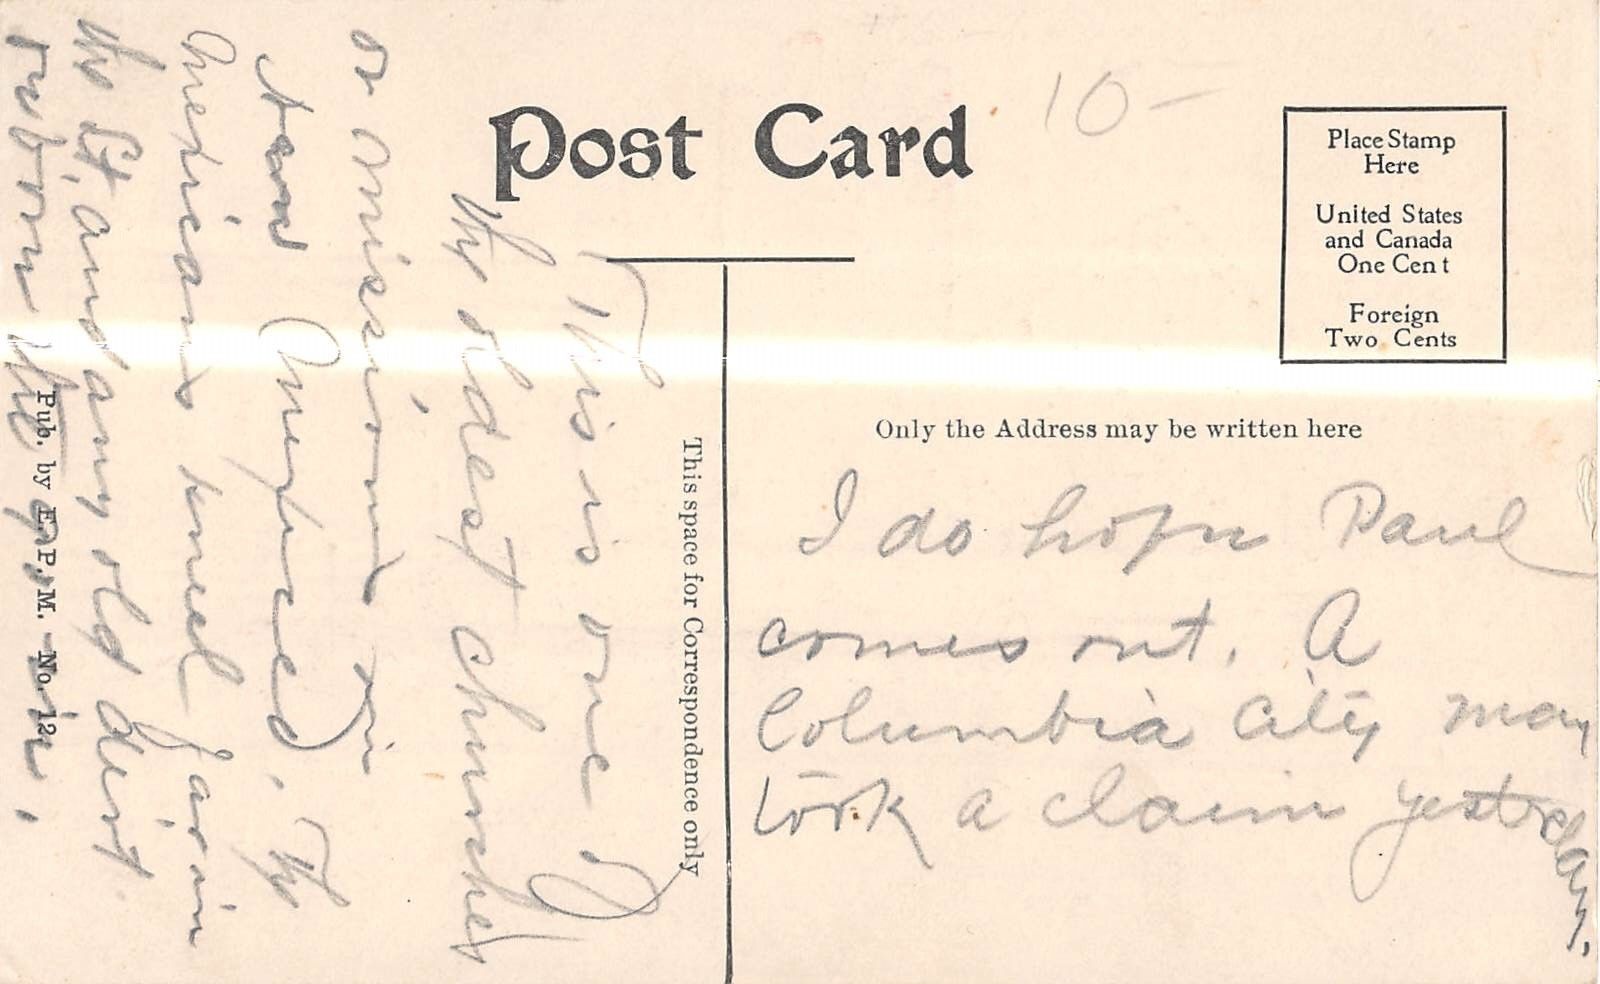 Post Card
10-
Place Stamp
Here
United States
and Canada
One Cent
Foreign
Two Cents
This space for Correspondence only
Only the Address may be written here
This is one of
the oldest churches
or missions in
New America. The
Mexicans kneel far in
the St. and any old dirt
custom
Pub. by E. P. M. No. 12
I do hope Paul
comes out. A
Columbia City man
took a claim yesterday.